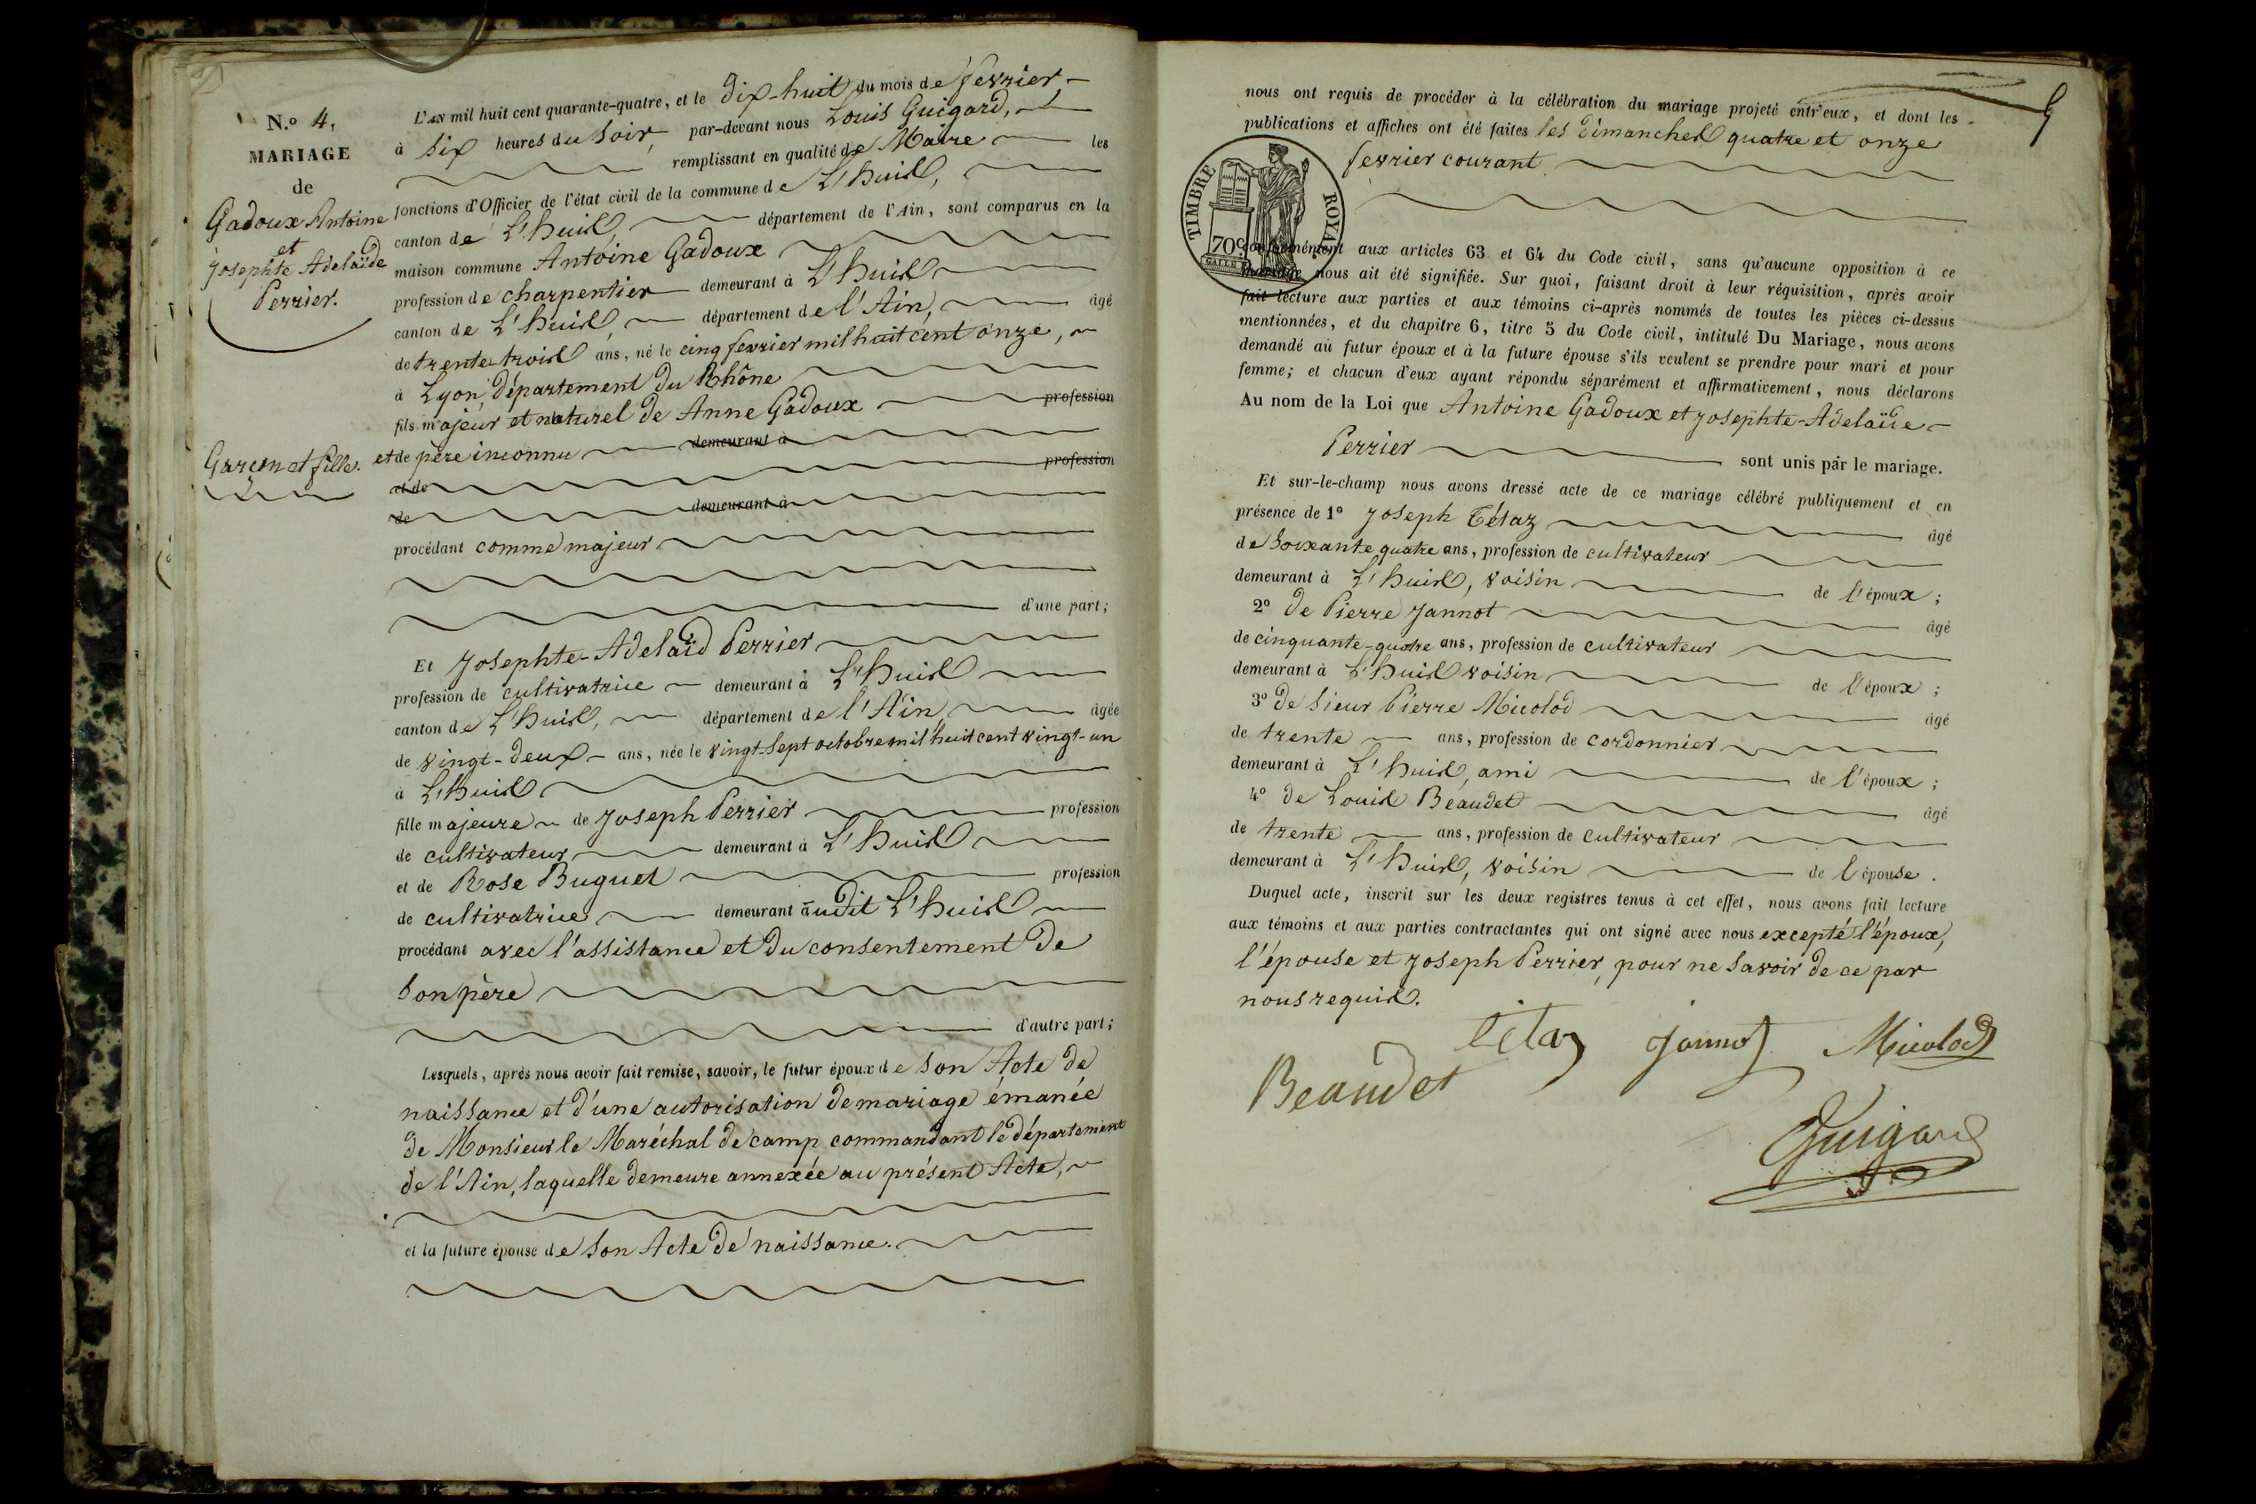 N.º 4,
MARIAGE
de
Gadoux Antoine
et
Josephte Adelaïde
Perrier.
Garçon et fille.
L'AN mil huit cent quarante-quatre, et le Dix-huit du mois de fevrier
à Six heures du Soir, par-devant nous Louis Guigard,
remplissant en qualité de Maire les
fonctions d'Officier de l'état civil de la commune de L'huis,
canton de L'huis, département de l'Ain, sont comparus en la
maison commune Antoine Gadoux
profession de charpentier demeurant à L'huis
canton de L'huis, département de l'Ain, âgé
de trente trois ans, né le cinq fevrier mil huit cent onze,
à Lyon, département du Rhône
fils majeur et naturel de Anne Gadoux profession
et de père inconnu demeurant à
et de profession
de demeurant à
procédant comme majeur
d'une part;
Et Josephte-Adelaïd Perrier
profession de cultivatrice demeurant à L'huis
canton de L'huis, département de l'Ain, âgée
de vingt-deux ans, née le vingt-sept octobre mil huit cent vingt-un
à L'huis
fille majeure de Joseph Perrier profession
de cultivateur demeurant à L'huis
et de Rose Buguet profession
de cultivatrice demeurant audit L'huis
procédant avec l'assistance et du consentement de
Son père
d'autre part;
Lesquels, après nous avoir fait remise, savoir, le futur époux de Son Acte de
naissance et d'une autorisation de mariage émanée
de Monsieur le Maréchal de camp commandant le département
de l'Ain, laquelle demeure annexée au présent Acte,
et la future épouse de Son Acte de naissance.
nous ont requis de procéder à la célébration du mariage projeté entr'eux, et dont les
publications et affiches ont été faites les Dimanches quatre et onze
fevrier courant
TIMBRE ROYAL
70 c.
conformément aux articles 63 et 64 du Code civil, sans qu'aucune opposition à ce
mariage nous ait été signifiée. Sur quoi, faisant droit à leur réquisition, après avoir
fait lecture aux parties et aux témoins ci-après nommés de toutes les pièces ci-dessus
mentionnées, et du chapitre 6, titre 5 du Code civil, intitulé Du Mariage, nous avons
demandé au futur époux et à la future épouse s'ils veulent se prendre pour mari et pour
femme; et chacun d'eux ayant répondu séparément et affirmativement, nous déclarons
Au nom de la Loi que Antoine Gadoux et Josephte-Adelaïde
Perrier sont unis par le mariage.
Et sur-le-champ nous avons dressé acte de ce mariage célébré publiquement et en
présence de 1º Joseph Tétaz âgé
de Soixante quatre ans, profession de cultivateur
demeurant à L'huis, voisin de l'époux;
2º de Pierre Jannot âgé
de cinquante-quatre ans, profession de cultivateur
demeurant à L'huis voisin de l'époux;
3º de Sieur Pierre Micolod âgé
de trente ans, profession de cordonnier
demeurant à L'huis, ami de l'époux;
4º de Louis Béaudet âgé
de trente ans, profession de cultivateur
demeurant à L'huis, voisin de l'épouse.
Duquel acte, inscrit sur les deux registres tenus à cet effet, nous avons fait lecture
aux témoins et aux parties contractantes qui ont signé avec nous excepté l'époux,
l'épouse et Joseph Perrier, pour ne Savoir de ce par
nous requis.
Tétaz Jannot Micolod
Beaudet
Guigard